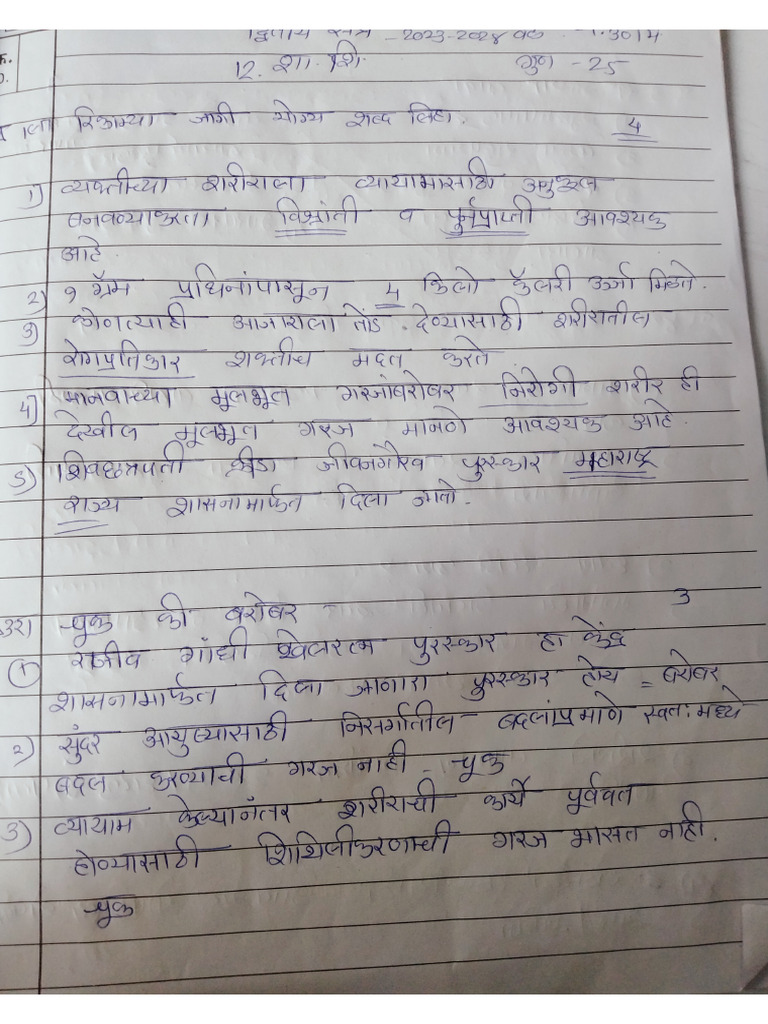 द्वितीय सत्र - 2023-2024
12. शा. शि. गुण - 25
रिकाम्या जागी योग्य शब्द लिहा. 4
1) व्यक्तीच्या शरीराला व्यायामासाठी अनुकूल
बनवण्याकरता विश्रांती व पुर्नप्राप्ती आवश्यक
आहे.
2) १ ग्रॅम प्रथिनांपासून 4 किलो कॅलरी उर्जा मिळते.
3) कोणत्याही आजाराला तोंड देण्यासाठी शरीरातील
रोगप्रतिकार शक्तीच मदत करते
4) मानवाच्या मूलभूत गरजांबरोबर निरोगी शरीर ही
देखील मूलभूत गरज मानणे आवश्यक आहे.
5) शिवछत्रपती क्रीडा जीवनगौरव पुरस्कार महाराष्ट्र
राज्य शासनामार्फत दिला जातो.
चूक की बरोबर 3
1) राजीव गांधी खेलरत्न पुरस्कार हा केंद्र
शासनामार्फत दिला जाणारा पुरस्कार होय = बरोबर
2) सुंदर आयुष्यासाठी निसर्गातील बदलांप्रमाणे स्वतः मध्ये
बदल करण्याची गरज नाही - चूक
3) व्यायाम केल्यानंतर शरीराची कार्ये पूर्ववत
होण्यासाठी शिथिलीकरणाची गरज भासत नाही.
चूक